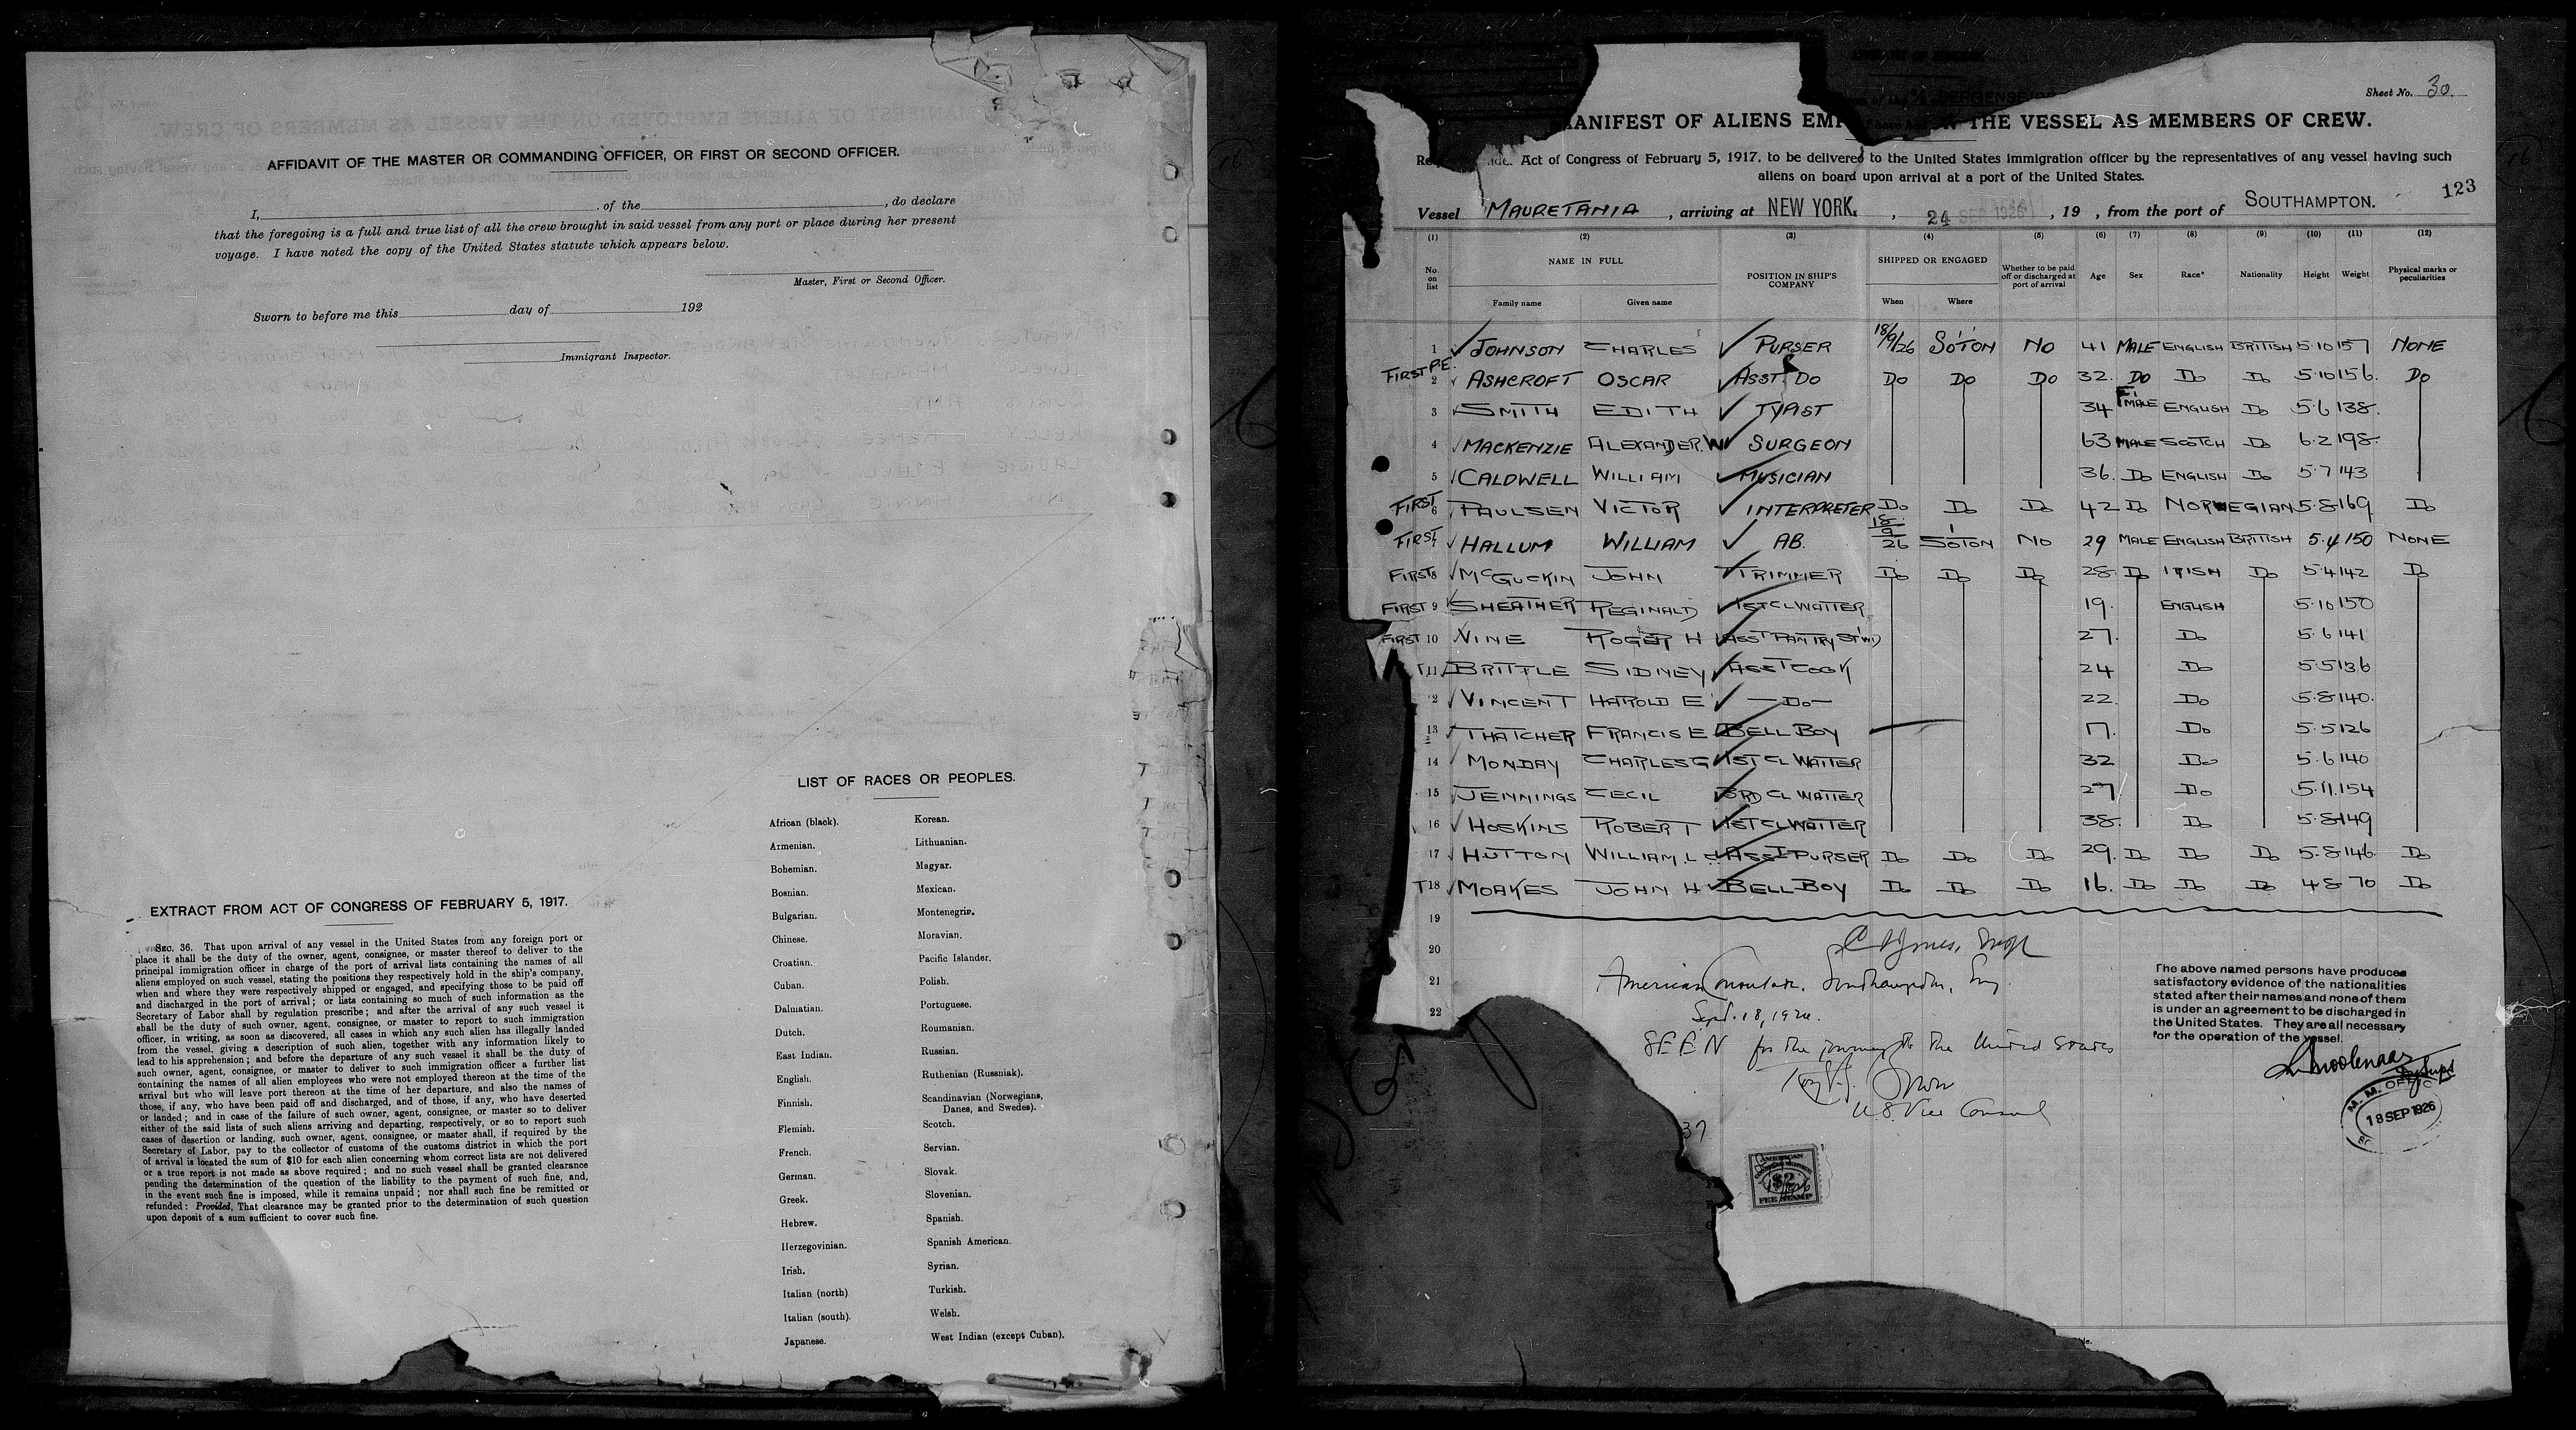 AFFIDAVIT OF THE MASTER OR COMMANDING OFFICER, OR FIRST OR SECOND OFFICER.
I, of the , do declare
that the foregoing is a full and true list of all the crew brought in said vessel from any port or place during her present
voyage. I have noted the copy of the United States statute which appears below.
Master, First or Second Officer.
Sworn to before me this day of 192
Immigrant Inspector.
EXTRACT FROM ACT OF CONGRESS OF FEBRUARY 5, 1917.
SEC. 36. That upon arrival of any vessel in the United States from any foreign port or
place it shall be the duty of the owner, agent, consignee, or master thereof to deliver to the
principal immigration officer in charge of the port of arrival lists containing the names of all
aliens employed on such vessel, stating the positions they respectively hold in the ship's company,
when and where they were respectively shipped or engaged, and specifying those to be paid off
and discharged in the port of arrival; or lists containing so much of such information as the
Secretary of Labor shall by regulation prescribe; and after the arrival of any such vessel it
shall be the duty of such owner, agent, consignee, or master to report to such immigration
officer, in writing, as soon as discovered, all cases in which any such alien has illegally landed
from the vessel, giving a description of such alien, together with any information likely to
lead to his apprehension; and before the departure of any such vessel it shall be the duty of
such owner, agent, consignee, or master to deliver to such immigration officer a further list
containing the names of all alien employees who were not employed thereon at the time of the
arrival but who will leave port thereon at the time of her departure, and also the names of
those, if any, who have been paid off and discharged, and of those, if any, who have deserted
or landed; and in case of the failure of such owner, agent, consignee, or master so to deliver
either of the said lists of such aliens arriving and departing, respectively, or so to report such
cases of desertion or landing, such owner, agent, consignee, or master shall, if required by the
Secretary of Labor, pay to the collector of customs of the customs district in which the port
of arrival is located the sum of $10 for each alien concerning whom correct lists are not delivered
or a true report is not made as above required; and no such vessel shall be granted clearance
pending the determination of the question of the liability to the payment of such fine, and,
in the event such fine is imposed, while it remains unpaid; nor shall such fine be remitted or
refunded: Provided, That clearance may be granted prior to the determination of such question
upon deposit of a sum sufficient to cover such fine.
LIST OF RACES OR PEOPLES.
African (black). Korean.
Armenian. Lithuanian.
Bohemian. Magyar.
Bosnian. Mexican.
Bulgarian. Montenegrin.
Chinese. Moravian.
Croatian. Pacific Islander.
Cuban. Polish.
Dalmatian. Portuguese.
Dutch. Roumanian.
East Indian. Russian.
English. Ruthenian (Russniak).
Finnish. Scandinavian (Norwegians, Danes, and Swedes).
Flemish. Scotch.
French. Servian.
German. Slovak.
Greek. Slovenian.
Hebrew. Spanish.
Herzegovinian. Spanish American.
Irish. Syrian.
Italian (north) Turkish.
Italian (south). Welsh.
Japanese. West Indian (except Cuban).
Sheet No. 30.
MANIFEST OF ALIENS EMP THE VESSEL AS MEMBERS OF CREW.
Act of Congress of February 5, 1917, to be delivered to the United States immigration officer by the representatives of any vessel having such
aliens on board upon arrival at a port of the United States.
123
Vessel MAURETANIA, arriving at NEW YORK, 24 SEP 1926, 19 , from the port of SOUTHAMPTON.
(1) (2) (3) (4) (5) (6) (7) (8) (9) (10) (11) (12)
No. on list NAME IN FULL Family name Given name POSITION IN SHIP'S COMPANY SHIPPED OR ENGAGED When Where Whether to be paid off or discharged at port of arrival Age Sex Race* Nationality Height Weight Physical marks or peculiarities
1 JOHNSON CHARLES PURSER 18/9/26 SO'TON NO 41 MALE ENGLISH BRITISH 5.10 157 NONE
FIRST P.E. 2 ASHCROFT OSCAR ASST. DO DO DO DO 32. DO DO DO 5.10 156. DO
3 SMITH EDITH TYPIST 34 FMALE ENGLISH DO 5.6 138.
4 MACKENZIE ALEXANDER.W SURGEON 63 MALE SCOTCH DO 6.2 198.
5 CALDWELL WILLIAM MUSICIAN 36. DO ENGLISH DO 5.7 143
FIRST 6 PAULSEN VICTOR INTERPRETER DO DO DO 42 DO NORWEGIAN 5.8 169 DO
FIRST 7 HALLUM WILLIAM AB. 18/9/26 SO'TON NO 29 MALE ENGLISH BRITISH 5.4 150 NONE
FIRST 8 McGUCKIN JOHN TRIMMER DO DO DO 28. DO IRISH DO 5.4 142 DO
FIRST 9 SHEATHER REGINALD 1ST CL WAITER 19. ENGLISH 5.10 150
FIRST 10 VINE ROGER H ASST PANTRY STWD 27. DO 5.6 141
T 11 BRITTLE SIDNEY ASST COOK 24 DO 5.5 136
2 VINCENT HAROLD E —DO— 22. DO 5.8 140.
13 THATCHER FRANCIS E BELL BOY 17. DO 5.5 126
14 MONDAY CHARLES G 1ST CL WAITER 32 DO 5.6 140
15 JENNINGS CECIL 3RD CL WAITER 27 DO 5.11. 154
16 HOSKINS ROBERT 1ST CL WAITER 38. DO 5.8 149
17 HUTTON WILLIAM. L ASST PURSER DO DO DO 29. DO DO DO 5.8 146. DO
T 18 MOAKES JOHN H BELL BOY DO DO DO 16. DO DO DO 4.8 70 DO
19
20
21
22
American Consulate, Southampton, Eng.
Sept. 18, 1926.
SEEN for the journey to the United States
U.S. Vice Consul
The above named persons have produced
satisfactory evidence of the nationalities
stated after their names and none of them
is under an agreement to be discharged in
the United States. They are all necessary
for the operation of the vessel.
M. M. OFFIC
18 SEP 1926
37
AMERICAN
$2
FEE STAMP